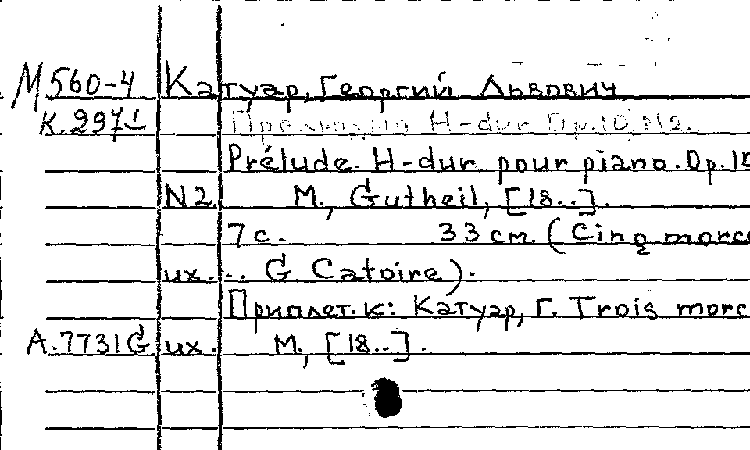 М560-4 Катуар, Георгий Львович
К.297
Прелюдия H-dur Op.10, N2.
Prélude. H-dur pour piano. Op.10
N2. М., Gutheil, [18..].
7 с. 33 см. (Cinq morce
ux... G Catoire).
Приплет. к: Катуар, Г. Trois morc
А.7731G ux. М., [18..].